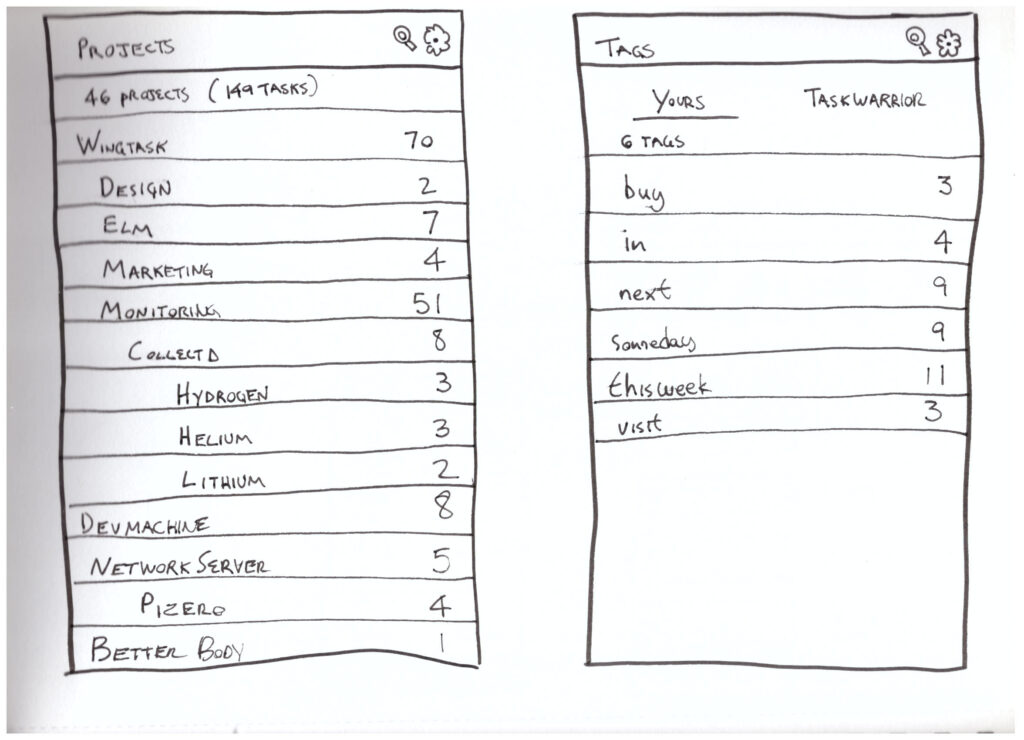 PROJECTS
46 PROJECTS (149 TASKS)
WINGTASK 70
DESIGN 2
ELM 7
MARKETING 4
MONITORING 51
COLLECTD 8
HYDROGEN 3
HELIUM 3
LITHIUM 2
DEVMACHINE 8
NETWORK SERVER 5
PIZERO 4
BETTER BODY 1
TAGS
YOURS TASKWARRIOR
6 TAGS
buy 3
in 4
next 9
someday 9
thisweek 11
visit 3